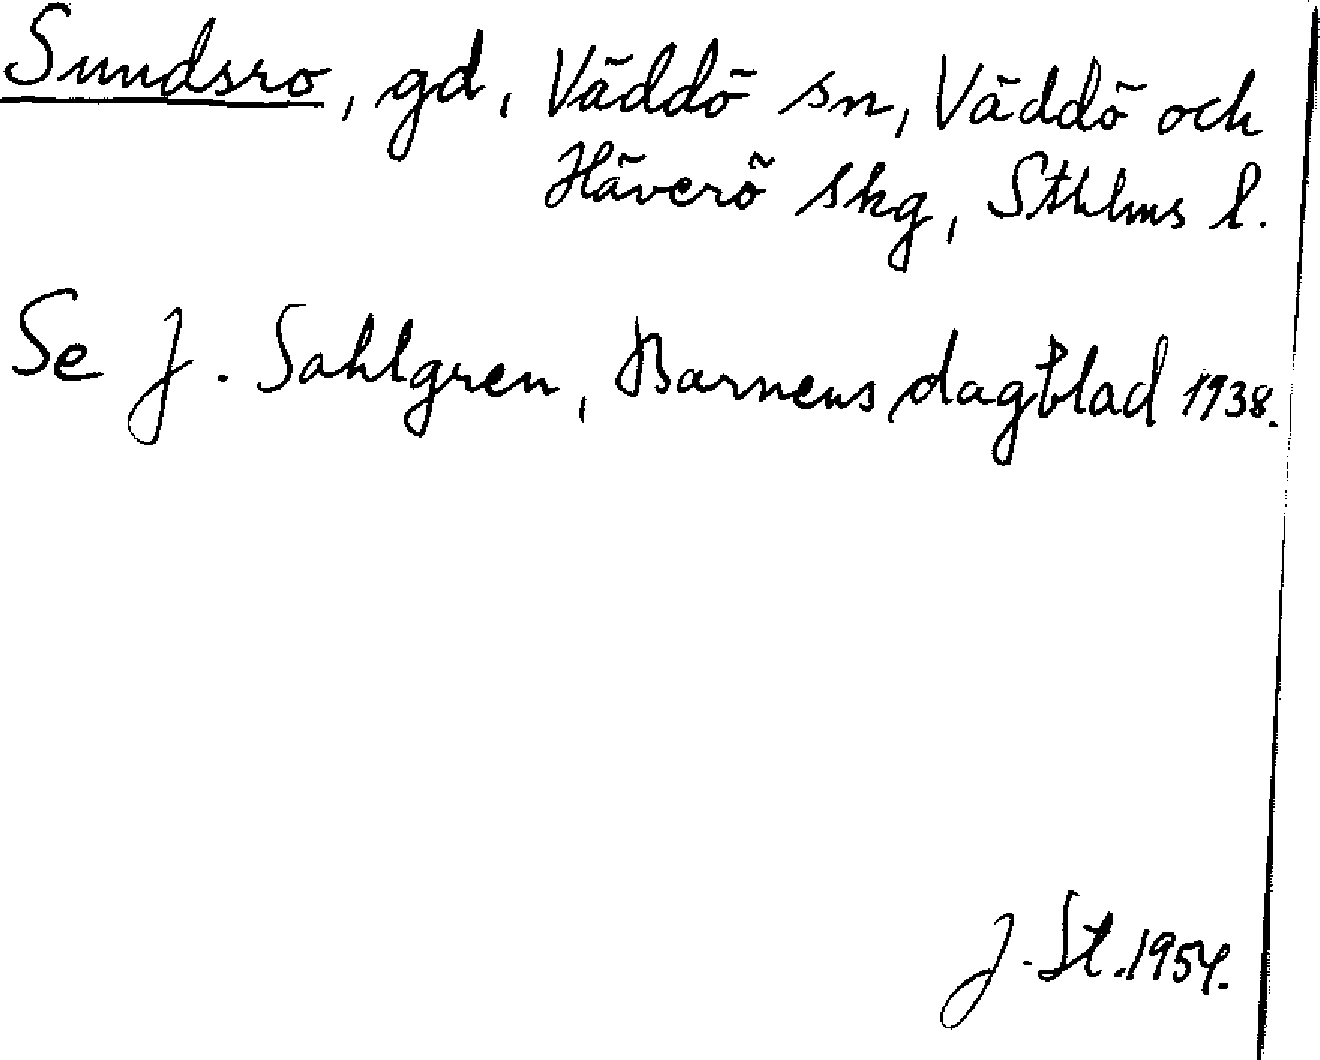 Sundsro, gd, Väddö sn, Väddö och
Häverö skg, Sthlms l.
Se J. Sahlgren, Barnens dagblad 1938.
J. St. 1954.